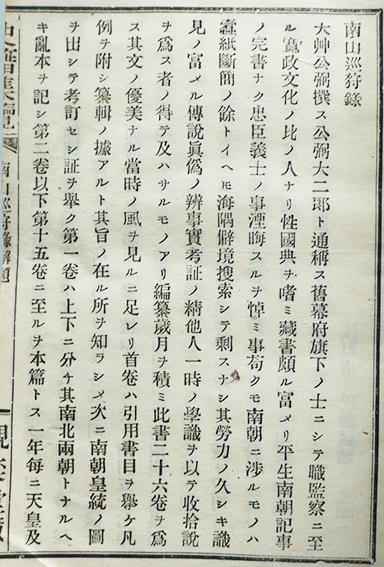 南山巡狩錄
大艸公弼撰ス公弼大二郎ト通稱ス舊幕府旗下ノ士ニシテ職監察ニ至
ル寬政文化ノ比ノ人ナリ性國典ヲ嗜ミ藏書頗ル富メリ平生南朝記事
ノ完書ナク忠臣義士ノ事湮晦スルヲ悼ミ事苟クモ南朝ニ涉ルモノハ
蠧紙斷簡ノ餘トイヘトモ海隅僻境搜索シテ剩スナシ其勞力ノ久シキ識
見ノ富メル傳說眞僞ノ辨事實考証ノ精他人一時ノ學識ヲ以テ收拾說
ヲ爲ス者ノ得テ及ハサルモノアリ編纂歲月ヲ積ミ此書二十六卷ヲ爲
ス其文ノ優美ナル當時ノ風ヲ見ルニ足レリ首卷ハ引用書目ヲ擧ケ凡
例ヲ附シ纂輯ノ據アルト其旨ノ在ル所ヲ知ラシメ次ニ南朝皇統ノ圖
ヲ出シテ考訂セシ証ヲ擧ク第一卷ハ上下ニ分チ其南北兩朝トナルヘ
キ亂本ヲ記シ第二卷以下第十五卷ニ至ルヲ本篇トス一年每ニ天皇及
南山巡狩錄解題